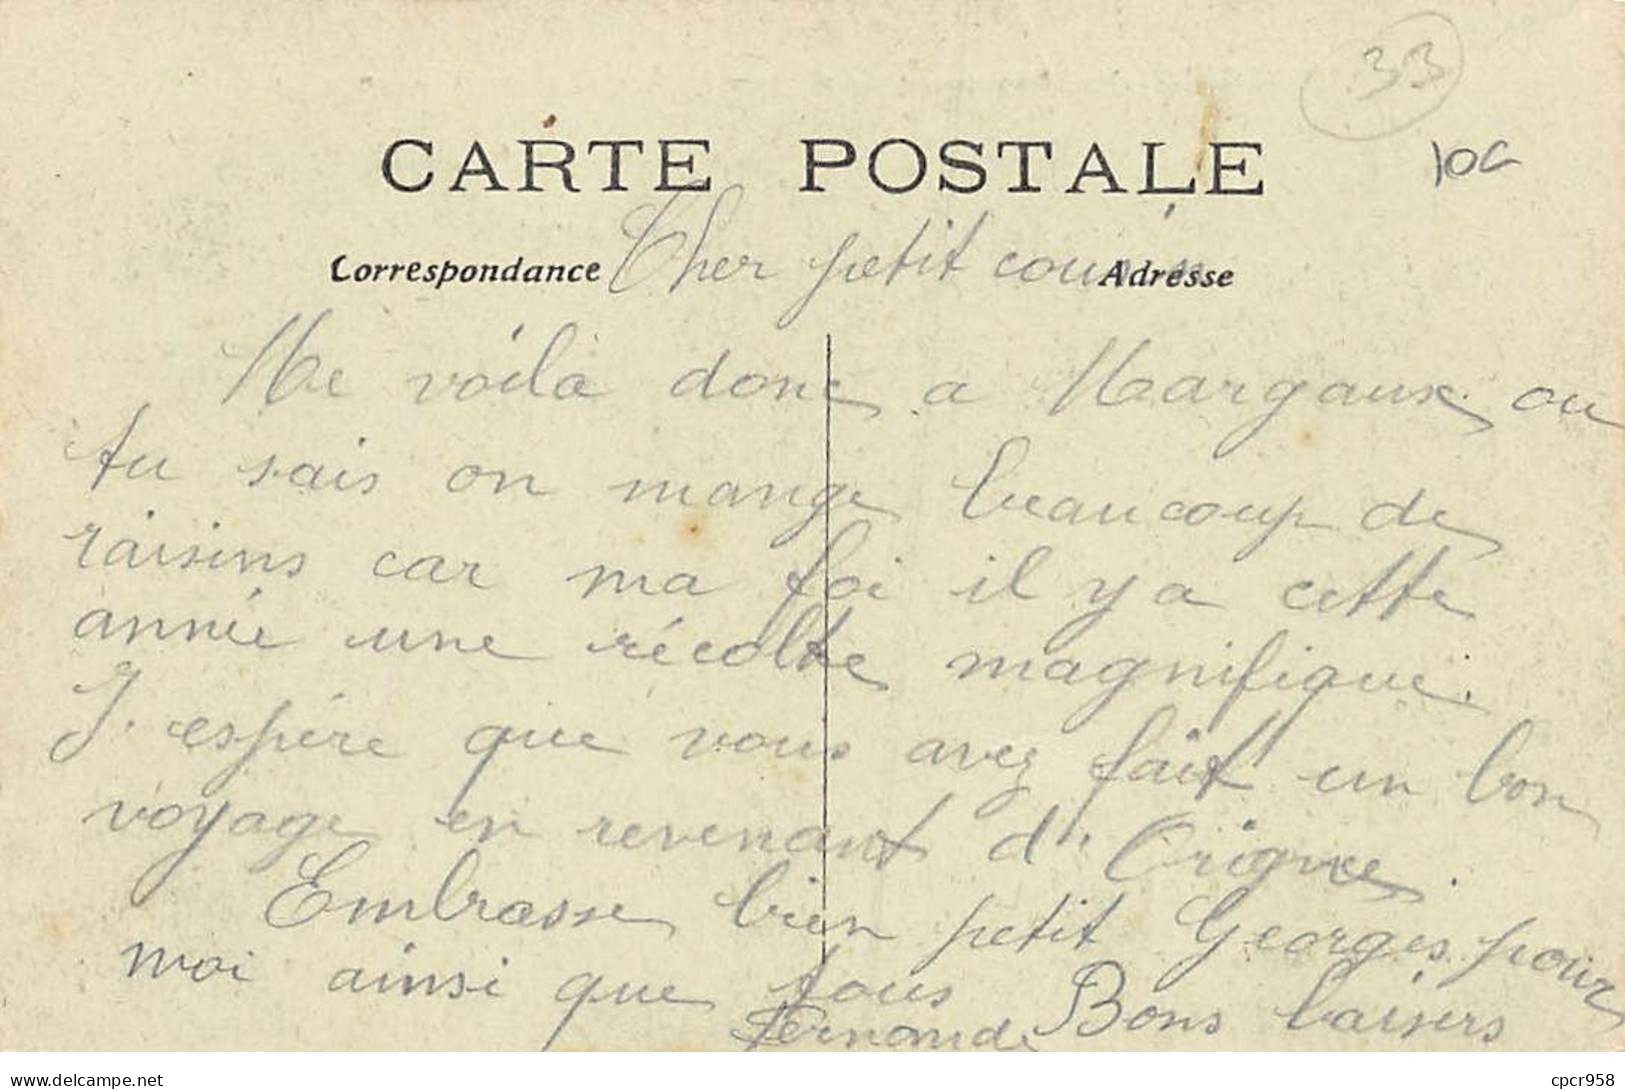 33
10C
CARTE POSTALE
Correspondance
Adresse
Cher petit cousin
Me voilà donc a Margaux ou
tu sais on mange beaucoup de
raisins car ma foi il y a cette
année une récolte magnifique.
J'espère que vous avez fait un bon
voyage en revenant d'Origne.
Embrasse bien petit Georges pour
moi ainsi que tous Bons baisers
Fernande
delcampe.net
cpcr958